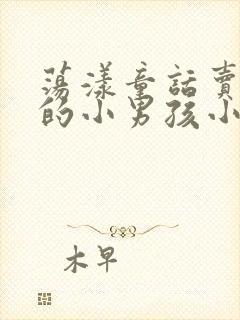 荡漾童話賣
的小男孩小
木早